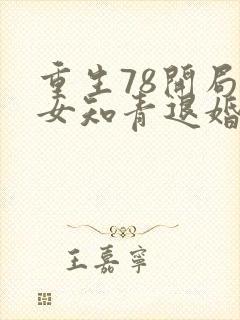 重生78開局
女知青退婚
王嘉寧